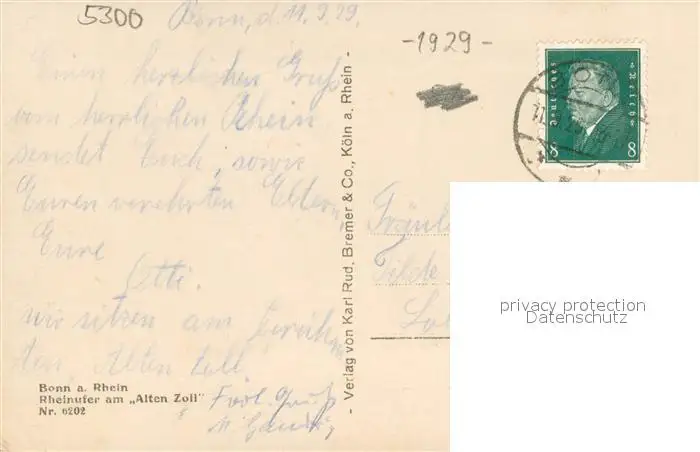 5300
Bonn, d. 11.9.29.
-1929-
Einen herzlichen Gruß
vom herrlichen Rhein
sendet Euch, sowie
Euren verehrten Eltern
Eure
Otti.
wir sitzen am berühm
ten Alten Zoll
Bonn a. Rhein
Rheinufer am „Alten Zoll"
Nr. 6202
- Verlag von Karl Rud. Bremer & Co., Köln a. Rhein -
Deutsches Reich
8 8
Tilde
privacy protection
Datenschutz